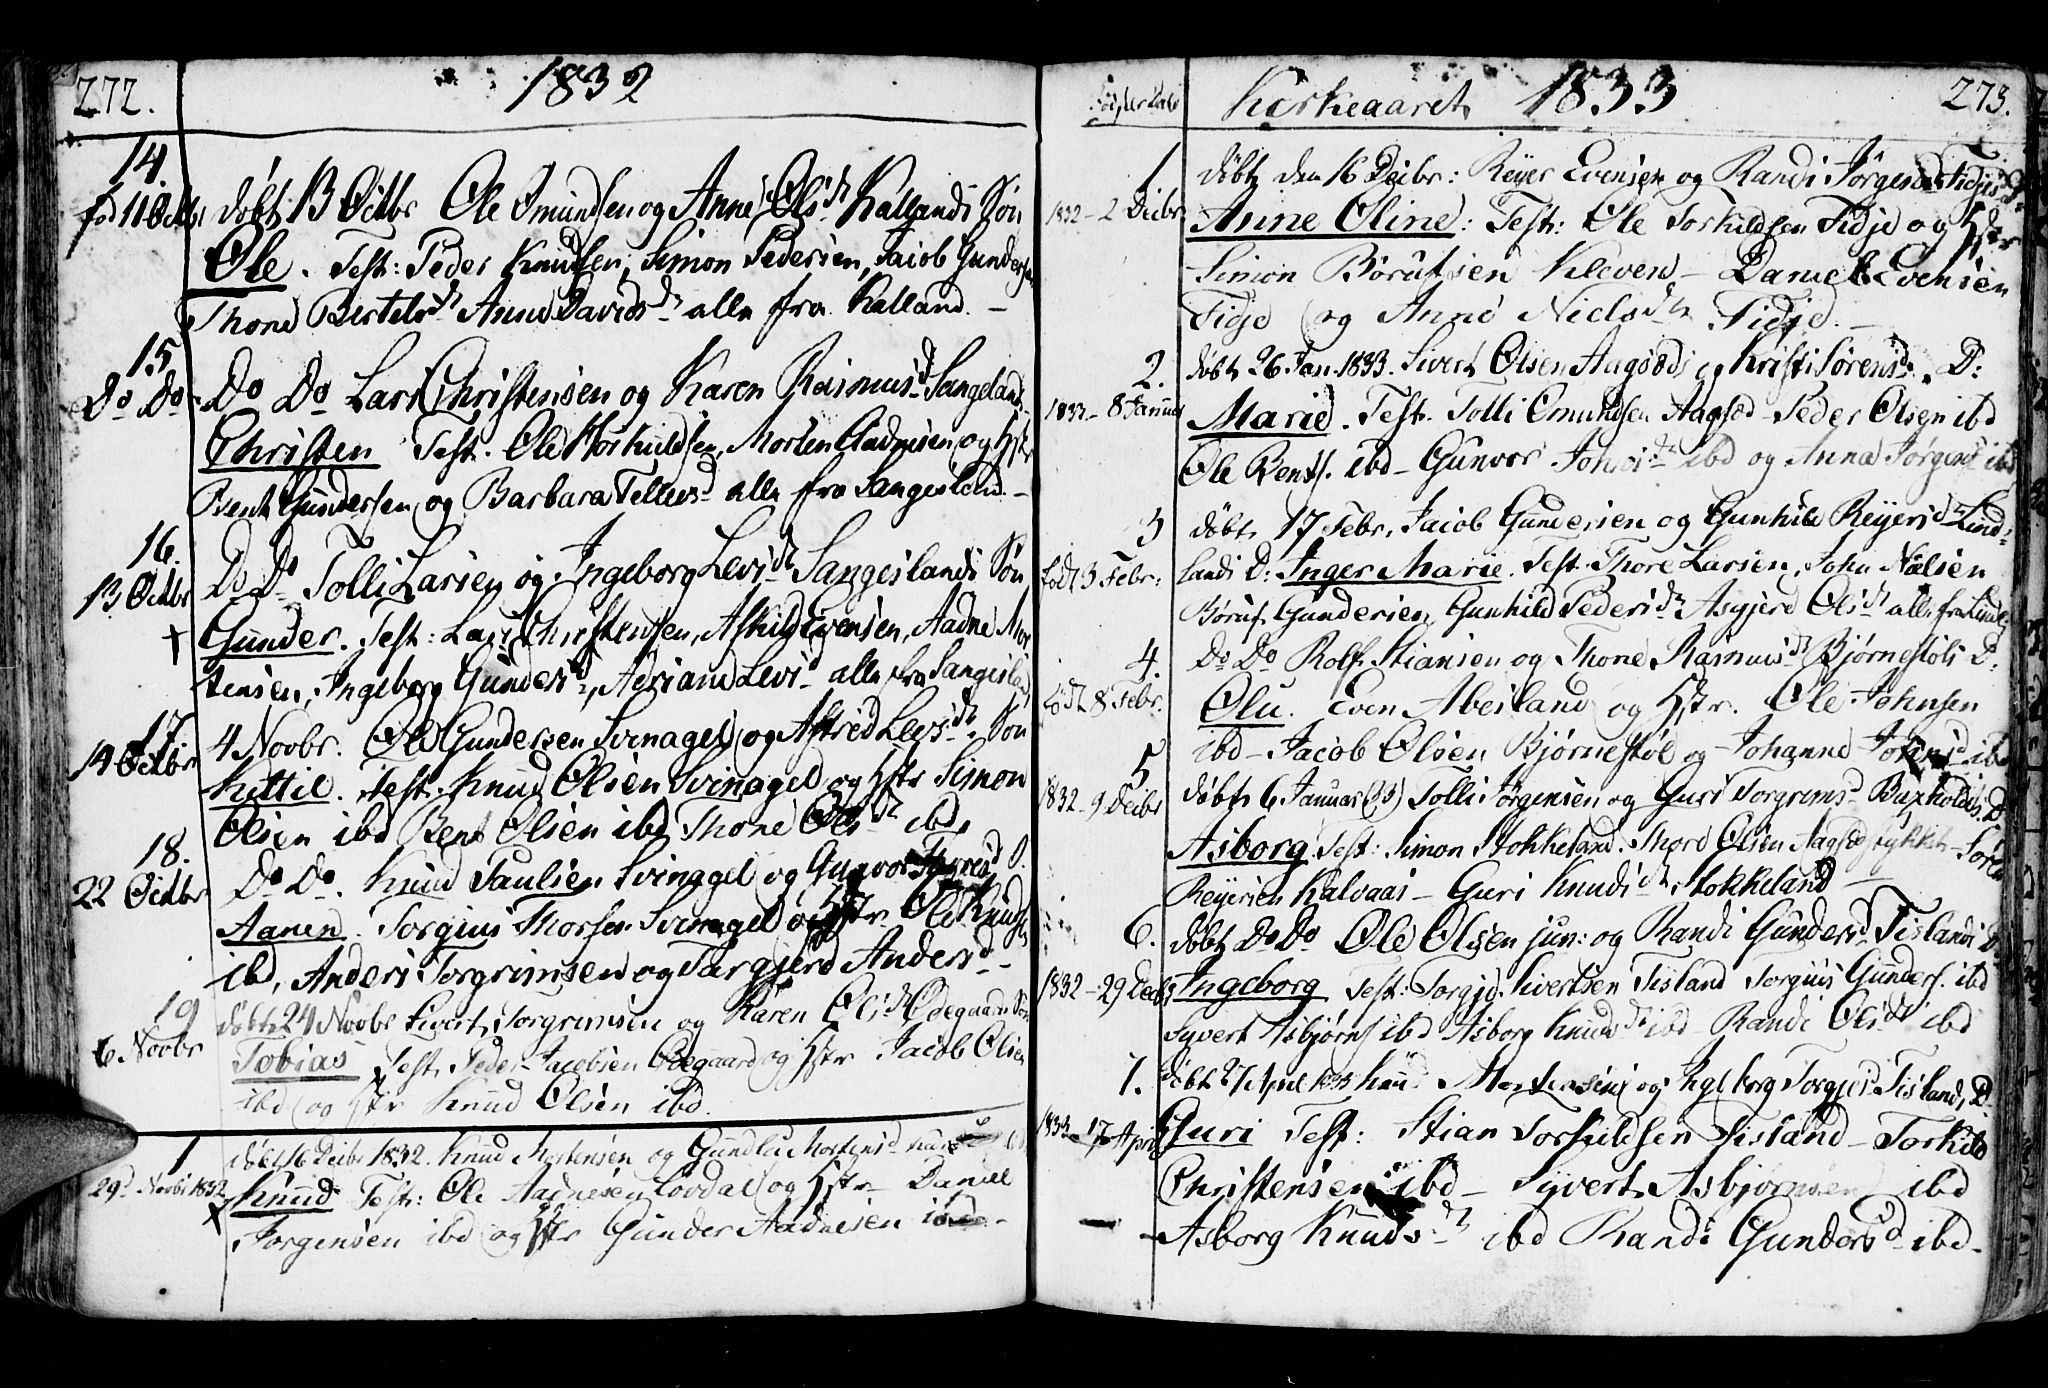 272.
1832
14
fød 11 Octbr døbt 13 Octbr Ole Omundsen og Anne Ols dtr Kallands Søn
Ole. Test: Peder Knudsen, Simon Pedersen, Jacob Gundersen
Thone Bertels dtr Anne Davids dtr alle fra Kalland. –
15.
Do Do Do Do Lars Christensen og Karen Rasmus d Sangeland
Christen Test. Ole Torkildsen, Morten Aadnesen og Hstr
Bent Gundersen og Barbara Tellevs d alle fra Sangesland. –
16.
Do Do Tolli Larsen og Ingeborg Levis dtr Sangeslands Søn
13 Octbr
Gunder. Test: Lars Christensen, Askild Evensen, Aadne Mor
tensen, Ingeborg Gunders d, Adriane Levis d alle fra Sangesland
17.
14 Octbr 4 Novbr. Ole Gundersen Svinagel og Astred Levs dtr Søn
Kittil. Test. Knud Olsen Svinagel og Hstr Simon
Olsen ibd Bent Olsen ibd Thone Ols dtr ibd
18.
22 Octbr Do Do. Knud Paulsen Svinagel og Gunvor d S.
Aanen. Torgius Thorsen Svinagel og Hstr Ole Knudsen
ibd, Anders Torgrimsen og Targjerd Anders d –
19
6 Novbr døbt 24 Novbr Sivert Torgrimsen og Karen Ols dtr Ødegaard Søn
Tobias Test. Peder Jacobsen Ødegaard og Hstr Jacob Olsen
ibd og Hstr Knud Olsen ibd.
1 døbt 16 Decbr 1832. Knud Mortensen og Gundlou Mortens d
29 Novbr 1832 Knud Test: Ole Aadnesen Løvdal og Hstr Daniel
Jørgensen ibd og Hstr Gunder Aadnesen ibd –
Kirkeaaret 1833
273.
1 døbt den 16 Decbr: Reyer Evensen og Randi Jørgens d Fidjes D.
1832 – 2 Decbr Anne Oline: Test: Ole Torkildsen Fidje og Hstr
Simon Børufsen Kleven – Daniel Evensen
Fidje og Anne Niels dtr Fidje. –
2. døbt 26 Jan. 1833. Sivert Olsen Aagsøds og Kristi Sørens d. D:
1833 – 8 Januar Marie. Test. Tolli Omundsen Aagsød – Peder Olsen ibd
Ole Bents. ibd – Gunvor dtr ibd og Anna Jørgens d ibd
3 døbt 17 Febr. Jacob Gundersen og Gunhild Reyers d Lind=
født 3 Febr: lands D: Inger Marie. Test. Thore Larsen, John Nielsen
Børuf Gundersen, Gunhild Peders dtr Asgjerd Ols dtr alle fra Lindl.
4. Do Do Rolf Stiansen og Thone Rasmus dtr Bjørnestøls D.
født 8 Febr. Olu. Even Abesland og Hstr. Ole Johnsen
ibd – Jacob Olsen Bjørnestøl og Johanne Johns d ibd
5
1832 – 9 Decbr døbt 6 Januar (33) Tolli Jørgensen og Guri Torgrims d D
Asborg. Test: Simon Stokkeland. Thore Olsen Aagsødstykket – Søren
Reyersen Kalvaas – Guri Knuds dtr Stokkeland
6. døbt Do Do Ole Olsen jun: og Randi Gunders d Tislands D
1832 – 29 Decbr Ingeborg Test: Torgjd. Sivertsen Tisland Torgius Gunders. ibd
Syvert Asbjørns ibd Asborg Knuds dtr ibd – Randi Ols dtr ibd
7. døbt 27 April 1833 Knud Mortensens og Ingeborg Torgjus d Tislands D.
1833 – 17 April Guri Test: Stian Torkildsen Tisland – Torkild
Christensen ibd – Syvert Asbjørnsen ibd
Asborg Knuds dtr ibd Randi Gunders d ibd –